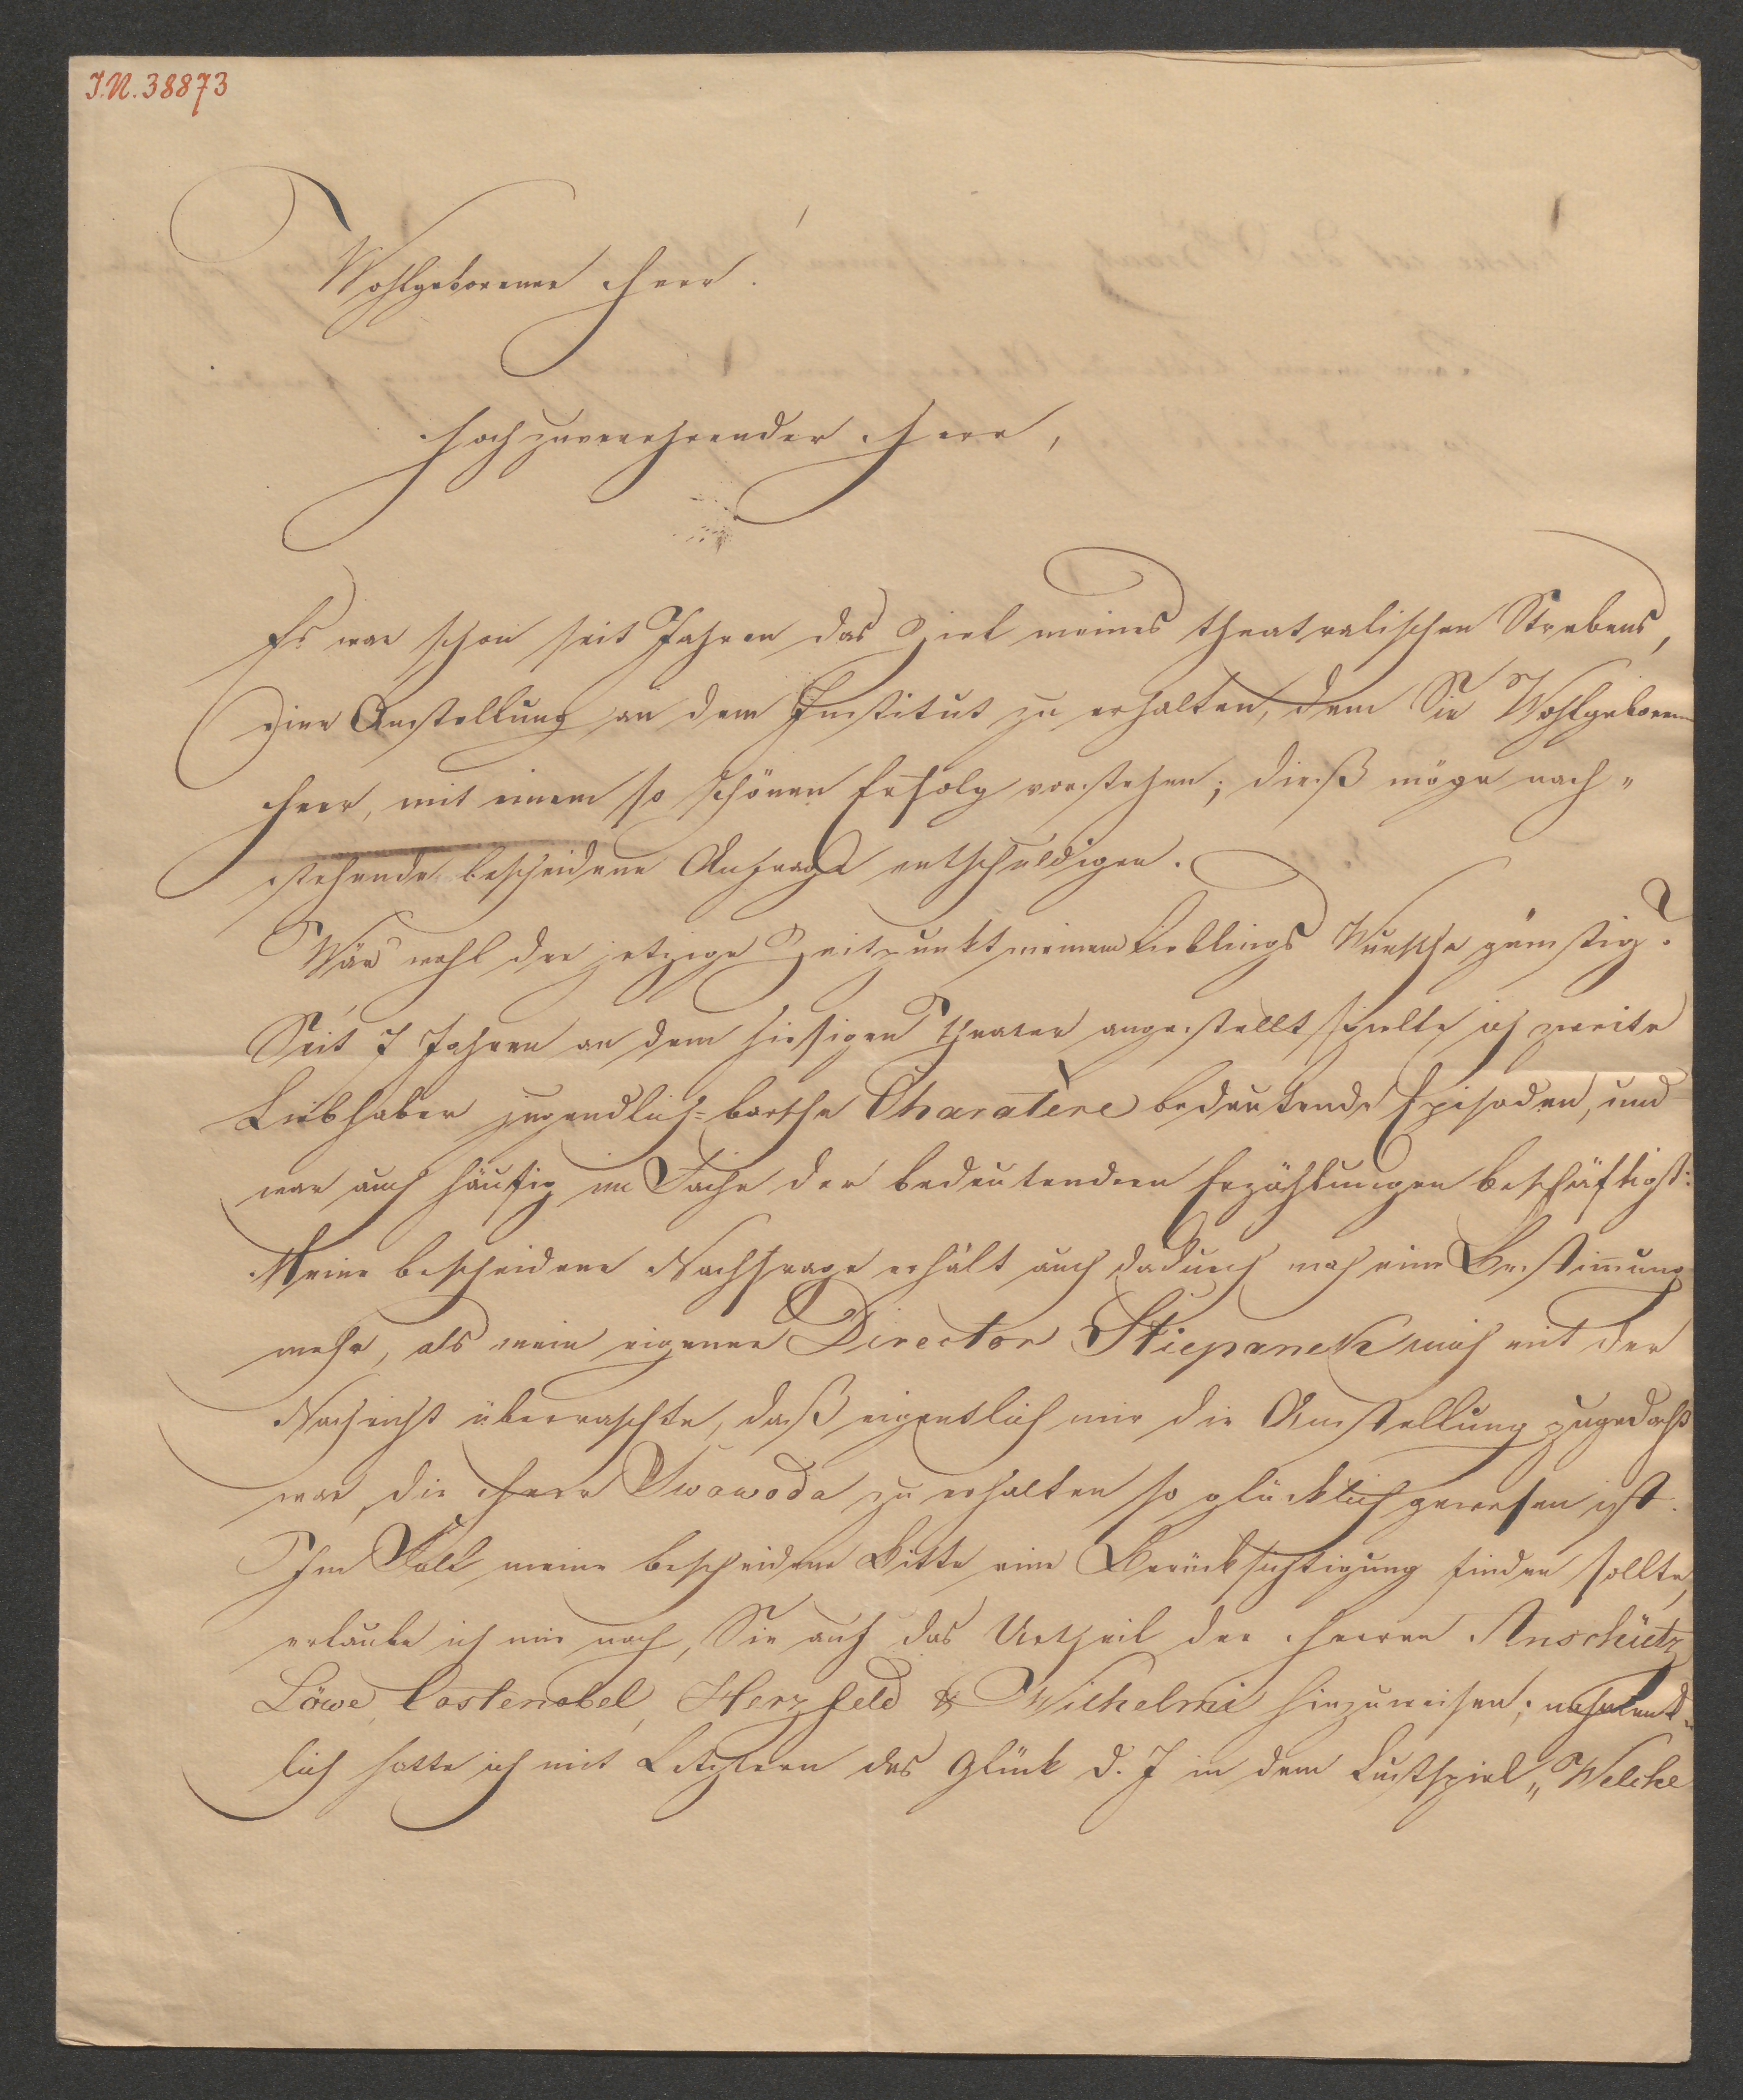 I.N. 38873
Wohlgeborener Herr!
Hochzuverehrender Herr,
Es war schon seit Jahren das Ziel meines theatralischen Strebens,
eine Anstellung an dem Institut zu erhalten, dem Sie Wohlgeborener
Herr, mit einem so schönen Erfolg vorstehen; dieß möge nach„
stehende bescheidene Anfrage entschuldigen.
Wär wohl der jetzige Zeitpunkt meinem Lieblings Wunsche günstig?
Seit 7 Jahren an dem hiesigen Theater angestellt spielte ich zweite
Liebhaber jugendlich=barsche Charatere bedeutende Episoden, und
war auch häufig im Fache der bedeutendern Erzählungen beschäftigt:
Meine bescheidene Nachfrage erhält auch dadurch noch eine Bestimmung
mehr, als mein eigener Director Stiepanek mich mit der
Nachricht überraschte, daß eigentlich mir die Anstellung zugedacht
war, die Herr Swowoda zu erhalten so glücklich gewesen ist.
Im Fall meine bescheidene Bitte eine Berücksichtigung finden sollte,
erlaube ich mir noch, Sie auf das Urtheil der Herren Anschütz
Löwe, Costenobel, Herzfeld & Wilhelmi hinzuweisen;
lich hatte ich mit Letztern das Glück d. J in dem Lustspiel „Welche